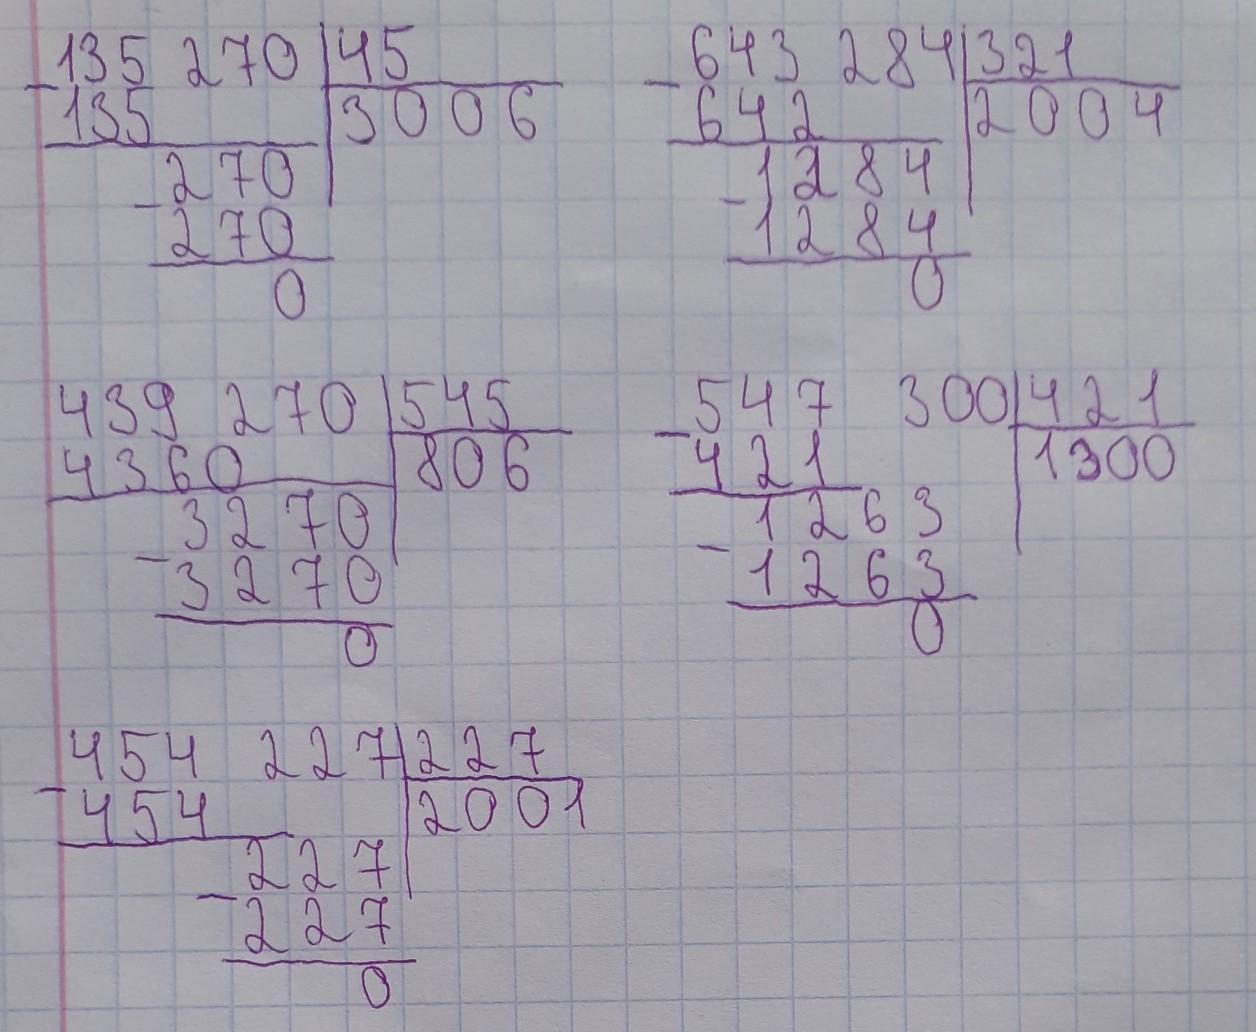 135 270 45
- 135 3006
270
- 270
0
643 284 321
- 642 2004
1284
- 1284
0
439 270 545
4360 806
3270
- 3270
0
547 300 421
- 421 1300
1263
- 1263
0
454 227 227
- 454 2001
227
- 227
0